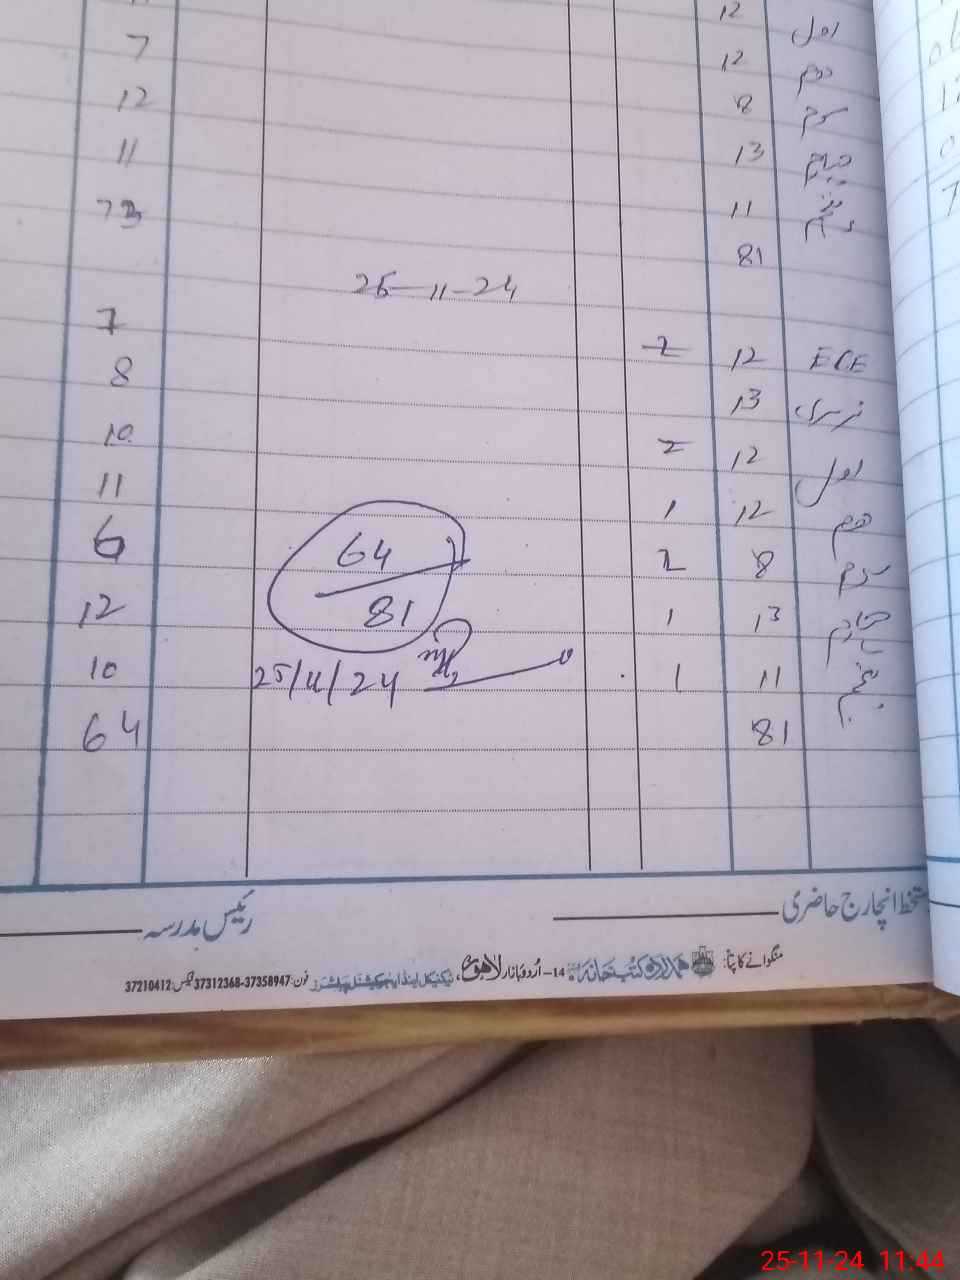 12
اول 12 7
دوم 12 12
سوم 8 11
چہارم 13 73
پنجم 11
81
25-11-24
ECE 12 2 7
نرسری 13 8
اول 12 2 10
دوم 12 1 11
سوم 8 2 6
چہارم 13 1 12
پنجم 11 1 10
81 64
64
81
25/11/24
دستخط انچارج حاضری
رئیس مدرسہ
منگوانے کا پتہ: ہمدرد کتب خانہ 14-اُردو بازار لاہور، ٹیکنیکل اینڈ ایجوکیشنل پبلشرز فون: 37358947-37312368 فیکس: 37210412
25-11-24 11:44